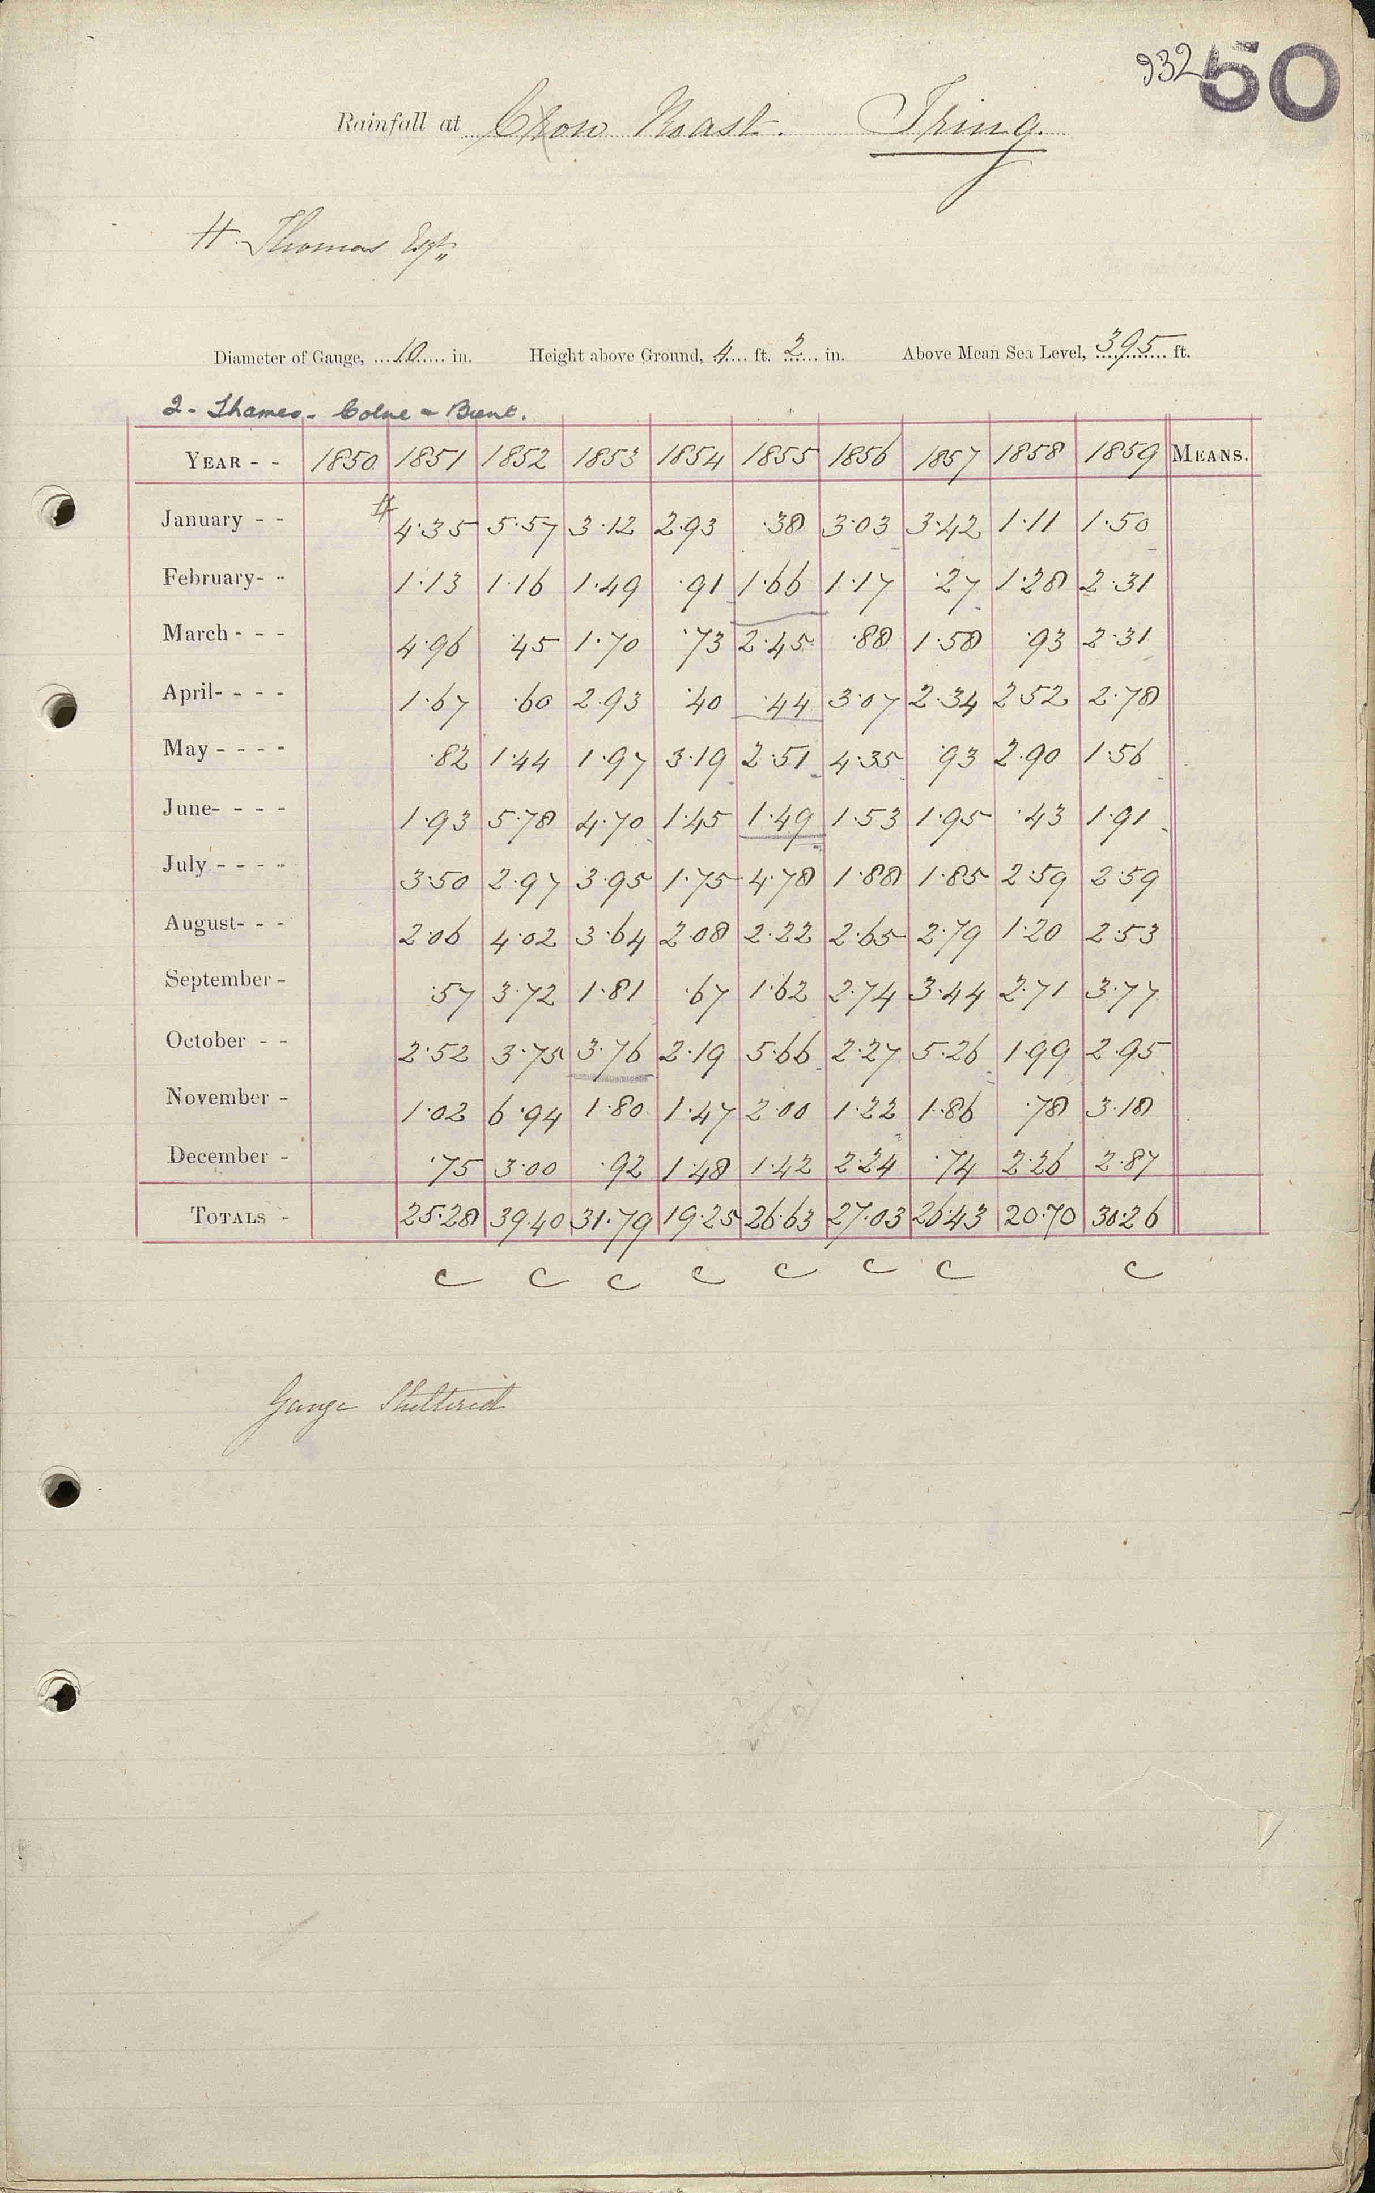 932 50
Rainfall at Crow Roast. Tring.
H. Thomas Esqr.
Diameter of Gauge, 10 in. Height above Ground, 4 ft. 2 in. Above Mean Sea Level, 395 ft.
2 - Thames - Colne & Brent.
YEAR - - 1850 1851 1852 1853 1854 1855 1856 1857 1858 1859 MEANS.
January - - # 4.35 5.57 3.12 2.93 .38 3.03 3.42 1.11 1.50
February- - 1.13 1.16 1.49 .91 1.66 1.17 .27 1.28 2.31
March - - - 4.96 .45 1.70 .73 2.45 .88 1.58 .93 2.31
April- - - - 1.67 .60 2.93 .40 .44 3.07 2.34 2.52 2.78
May - - - - .82 1.44 1.97 3.19 2.51 4.35 .93 2.90 1.56
June- - - - 1.93 5.78 4.70 1.45 1.49 1.53 1.95 .43 1.91
July - - - - 3.50 2.97 3.95 1.75 4.78 1.88 1.85 2.59 2.59
August- - - 2.06 4.02 3.64 2.08 2.22 2.65 2.79 1.20 2.53
September - .57 3.72 1.81 .67 1.62 2.74 3.44 2.71 3.77
October - - 2.52 3.75 3.76 2.19 5.66 2.27 5.26 1.99 2.95
November - 1.02 6.94 1.80 1.47 2.00 1.22 1.86 .78 3.18
December - .75 3.00 .92 1.48 1.42 2.24 .74 2.26 2.87
TOTALS - 25.28 39.40 31.79 19.25 26.63 27.03 26.43 20.70 30.26
c c c c c c c c
Gauge Sheltered